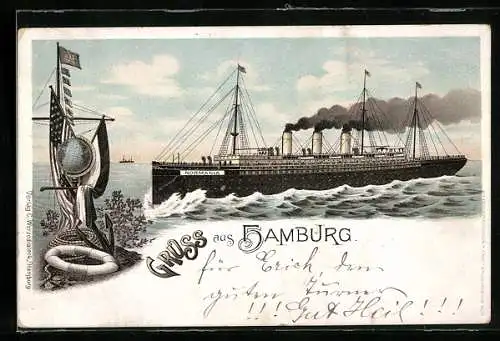 NORMANNIA
GRUSS aus HAMBURG.
für Erich, dem
guten Turner
!!! Gut Heil!!!